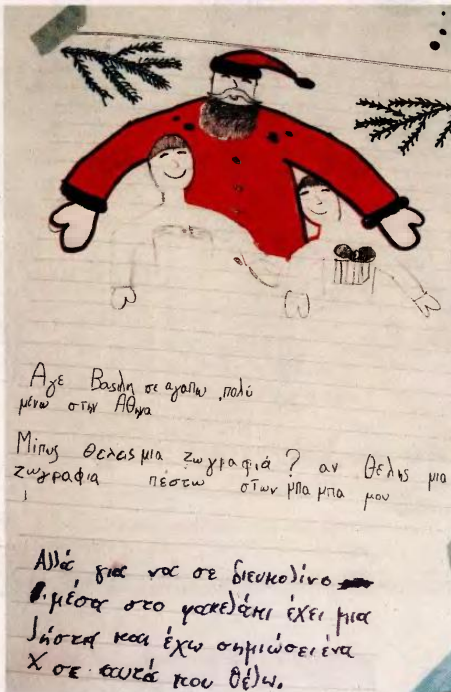 Αγε Βασιλη σε αγαπω πολύ
μένω στην Αθηνα
Μίπως θελεις μια ζωγραφιά? αν θέλης μια
ζωγραφια πέστω στων μπαμπα μου
Αλλά για να σε διευκολίνο
μέσα στο φακελάκι έχει μια
λήστα και έχω σημιώσει ένα
Χ σε αυτά που θέλω.